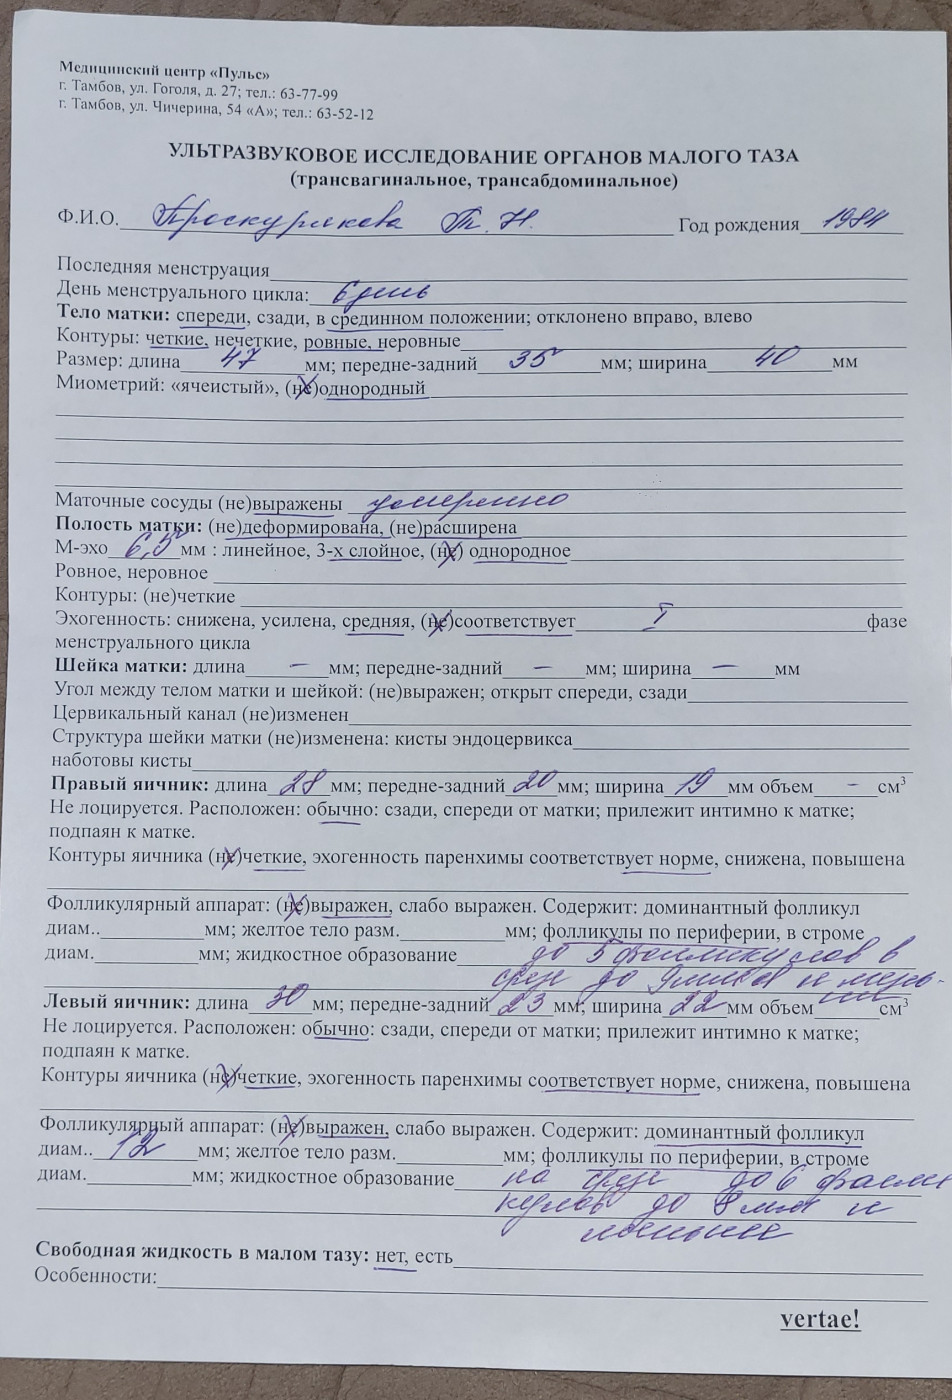 Медицинский центр «Пульс»
г. Тамбов, ул. Гоголя, д. 27; тел.: 63-77-99
г. Тамбов, ул. Чичерина, 54 «А»; тел.: 63-52-12
УЛЬТРАЗВУКОВОЕ ИССЛЕДОВАНИЕ ОРГАНОВ МАЛОГО ТАЗА
(трансвагинальное, трансабдоминальное)
Ф.И.О. Проскурякова Т. Н. Год рождения 1984
Последняя менструация
День менструального цикла: 6 день
Тело матки: спереди, сзади, в срединном положении; отклонено вправо, влево
Контуры: четкие, нечеткие, ровные, неровные
Размер: длина 47 мм; передне-задний 35 мм; ширина 40 мм
Миометрий: «ячеистый», (не)однородный
Маточные сосуды (не)выражены умеренно
Полость матки: (не)деформирована, (не)расширена
М-эхо 6,5 мм : линейное, 3-х слойное, (не) однородное
Ровное, неровное
Контуры: (не)четкие
Эхогенность: снижена, усилена, средняя, (не)соответствует I фазе
менструального цикла
Шейка матки: длина – мм; передне-задний – мм; ширина – мм
Угол между телом матки и шейкой: (не)выражен; открыт спереди, сзади
Цервикальный канал (не)изменен
Структура шейки матки (не)изменена: кисты эндоцервикса
наботовы кисты
Правый яичник: длина 28 мм; передне-задний 20 мм; ширина 19 мм объем – см³
Не лоцируется. Расположен: обычно: сзади, спереди от матки; прилежит интимно к матке;
подпаян к матке.
Контуры яичника (не)четкие, эхогенность паренхимы соответствует норме, снижена, повышена
Фолликулярный аппарат: (не)выражен, слабо выражен. Содержит: доминантный фолликул
диам.. мм; желтое тело разм. мм; фолликулы по периферии, в строме
диам. мм; жидкостное образование до 5 фолликулов в
срезе до 9 мм и мень-
Левый яичник: длина 30 мм; передне-задний 23 мм; ширина 22 мм объем см³
Не лоцируется. Расположен: обычно: сзади, спереди от матки; прилежит интимно к матке;
подпаян к матке.
Контуры яичника (не)четкие, эхогенность паренхимы соответствует норме, снижена, повышена
Фолликулярный аппарат: (не)выражен, слабо выражен. Содержит: доминантный фолликул
диам.. 12 мм; желтое тело разм. мм; фолликулы по периферии, в строме
диам. мм; жидкостное образование на срезе до 6 фолли
кулов до 8 мм и
меньше
Свободная жидкость в малом тазу: нет, есть
Особенности:
vertae!